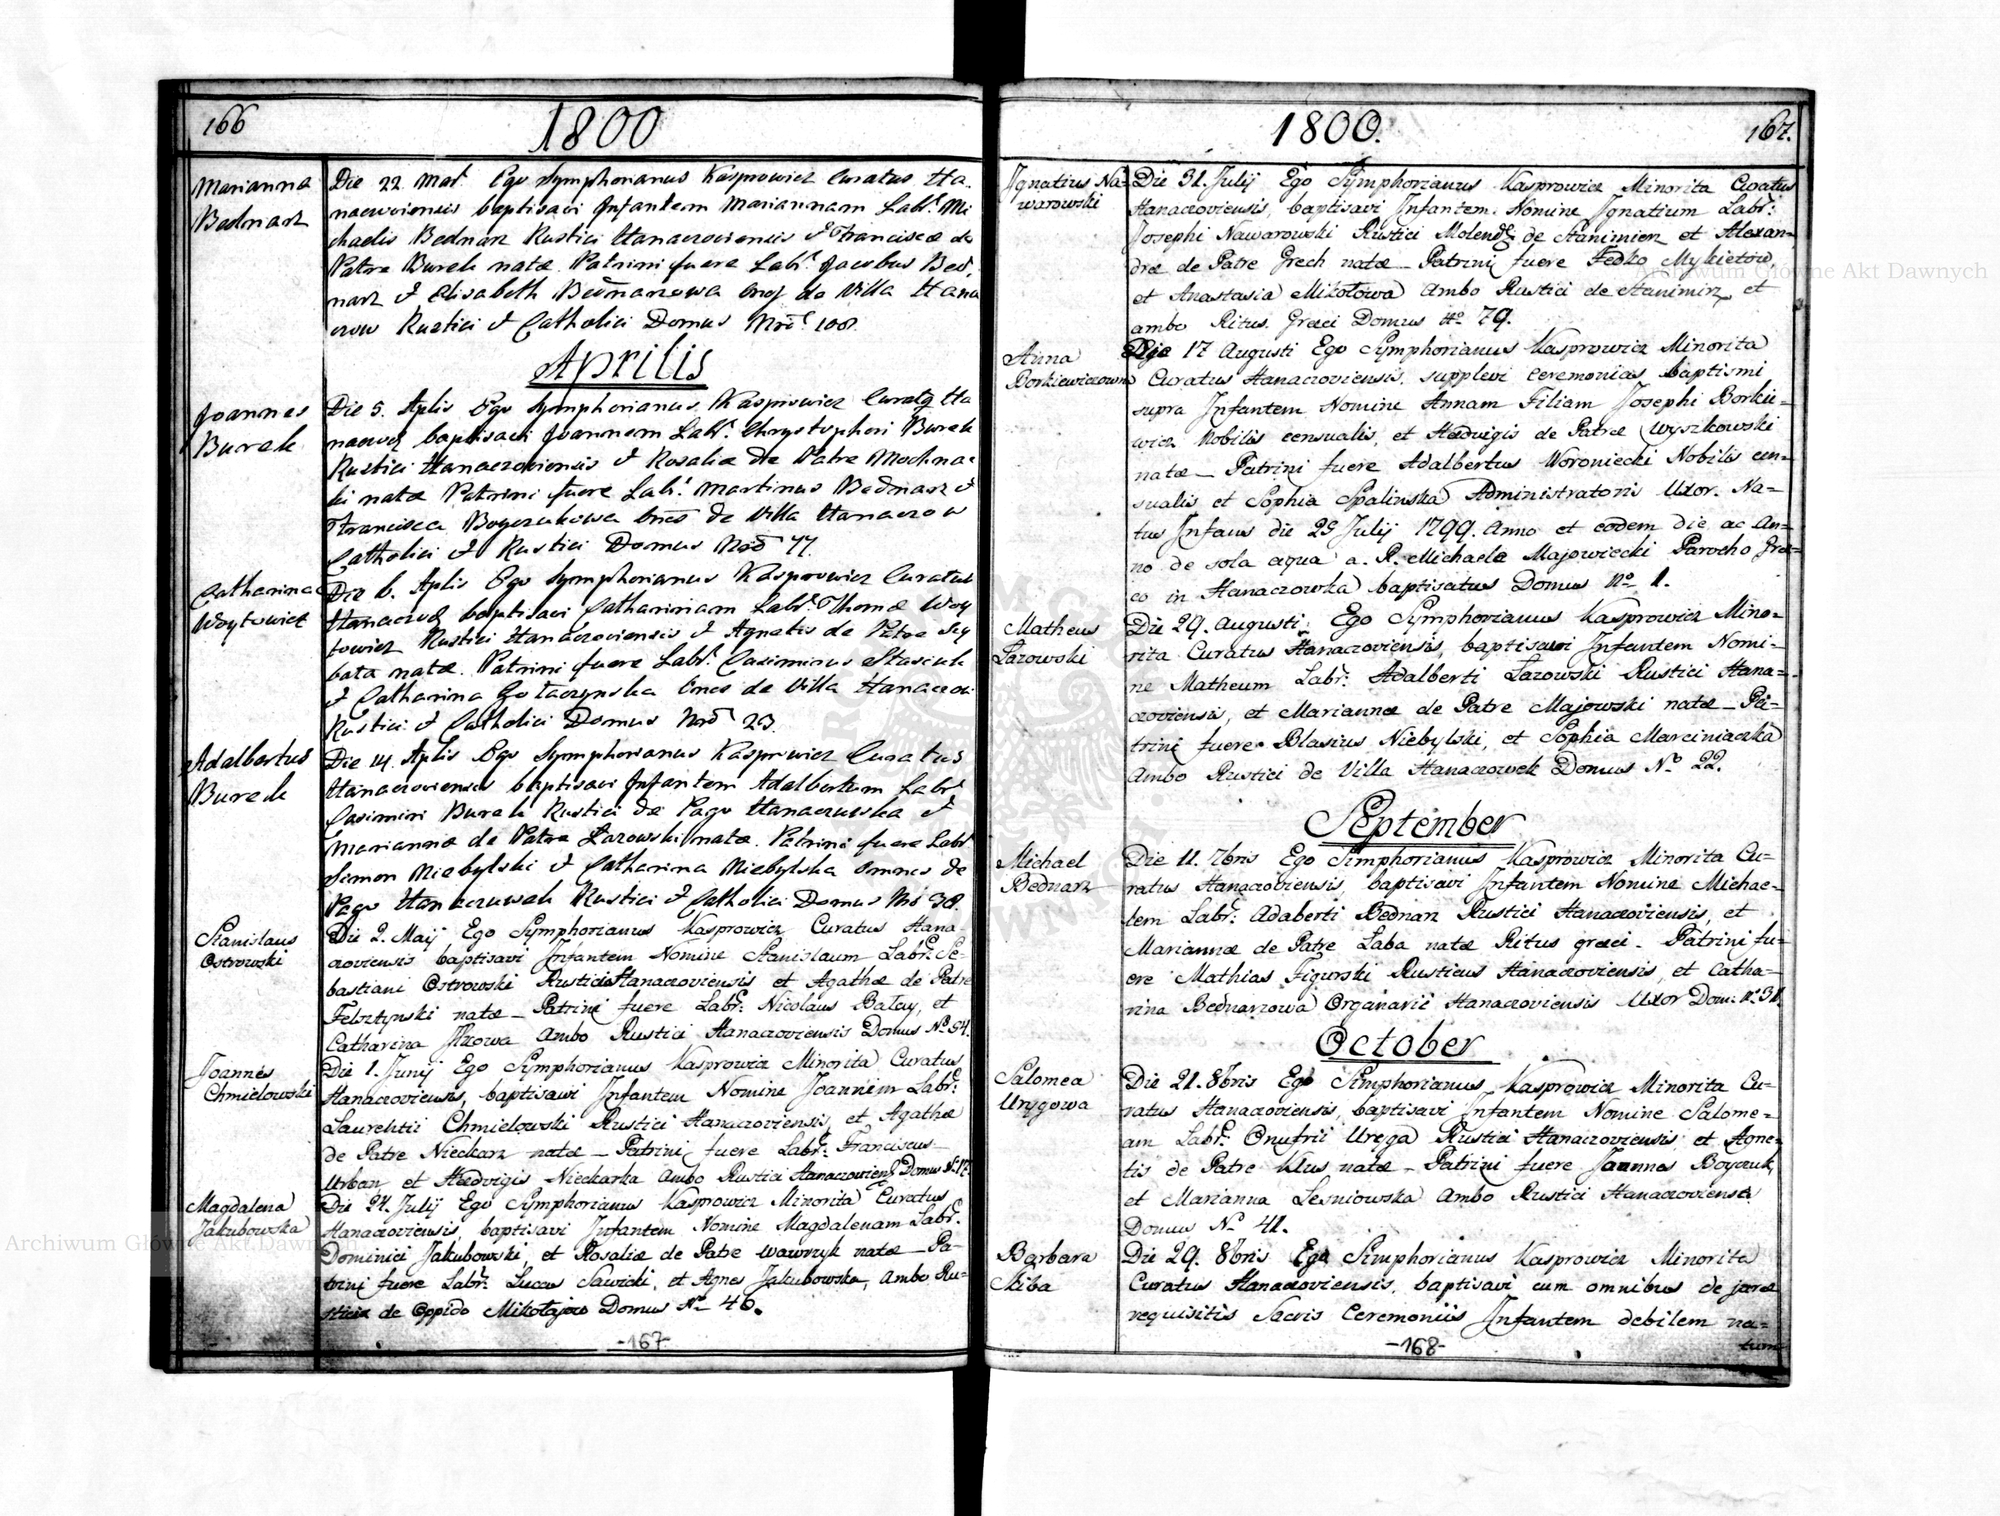 166
1800
Marianna
Bednarz
Die 22 Mar. Ego Symphorianus Kasprowicz Curatus Ha-
naczoviensis baptisavi Infantem Mariannam Labr. Mi
chaelis Bednarz Rustici Hanaczoviensis & Franciscæ de
Patre Burek natæ. Patrini fuere Labr. Jacobus Bed-
narz & Elisabeth Bednarzowa de Villa Hana
czow Rustici & Catholici Domus Nro 108.
Aprilis
Joannes
Burek
Die 5. Aplis Ego Symphorianus Kasprowicz Curatq Ha
naczov baptisavi Joannem Labr. Chrystophori Burek
Rustici Hanaczoviensis & Rosaliæ de Patre Mochna-
ki natæ Patrini fuere Labr. Martinus Bednarz &
Francisca Boyczukowa Onēs de Villa Hanaczow
Catholici & Rustici Domus Nro 77.
Catharina
Woytowicz
Die 6. Aplis Ego Symphorianus Kasprowicz Curatus
Hanaczov baptisavi Catharinam Labr. Thomæ Woy
towicz Rustici Hanaczoviensis & Agnetis de Patre Scy
bata natæ. Patrini fuere Labr. Casimirus Stasiuk
& Catharina Gołaczynska Ones de Villa Hanaczov
Rustici & Catholici Domus Nro 23.
Adalbertus
Burek
Die 14. Aplis Ego Symphorianus Kasprowicz Curatus
Hanaczoviensis baptisavi Infantem Adalbertum Labr.
Casimiri Burek Rustici de Pago Hanaczowska &
Mariannæ de Patre Lazowski natæ. Patrini fuere Labr.
Simon Niebylski & Catharina Niebylska omnes de
Pago Hanaczuwek Rustici & Catholici Domus Nro 38.
Stanislaus
Ostrowski
Die 2. Maij Ego Symphorianus Kasprowicz Curatus Hana
czoviensis baptisavi Infantem Nomine Stanislaum Labr. Se-
bastiani Ostrowski Rustici Hanaczoviensis et Agathæ de Patre
Felsztynski natæ – Patrini fuere Labr. Nicolaus Balay, et
Catharina Ambo Rustici Hanaczoviensis Domus No 54.
Joannes
Chmielowski
Die 1. Junij Ego Symphorianus Kasprowicz Minorita Curatus
Hanaczoviensis, baptisavi Infantem Nomine Joannem Labr:
Laurentii Chmielowski Rustici Hanaczoviensis, et Agathæ
de Patre Nieckarz natæ – Patrini fuere Labr. Franciscus
Urban et Hedvigis Nieckarka Ambo Rustici Hanaczoviens Domus No 17.
Magdalena
Jakubowska
Die 24. Julij Ego Symphorianus Kasprowicz Minorita Curatus
Hanaczoviensis, baptisavi Infantem Nomine Magdalenam Labr.
Dominici Jakubowski, et Rosaliæ de Patre Wawrzyk natæ – Pa-
trini fuere Labr. Lucas Sawicki, et Agnes Jakubowska, Ambo Ru-
stici de Oppido Mikołajow Domus No 46.
-167-
1800.
167.
Ignatius Na-
warowski
Die 31. Julij Ego Symphorianus Kasprowicz Minorita Curatus
Hanaczoviensis, baptisavi Infantem Nomine Ignatium Labr:
Josephi Nawarowski Rustici Molend de Stanimierz et Alexan-
dræ de Patre Grech natæ – Patrini fuere Fedko Mykietow,
et Anastasia Mikołowa Ambo Rustici de Stanimirz, et
ambo Ritus Greci Domus No 79.
Anna
Borkiewiczowna
Die 17 Augusti Ego Symphorianus Kasprowicz Minorita
Curatus Hanaczoviensis, supplevi Ceremonias baptismi
supra Infantem Nomine Annam Filiam Josephi Borkie-
wicz Nobilis censualis, et Hedvigis de Patre Wyszkowski
natæ – Patrini fuere Adalbertus Woroniecki Nobilis cen-
sualis et Sophia Spalinska Administratoris Uxor. Na-
tus Infans die 25 Julij 1799. Anno et eodem die ac An-
no de sola aqua a R. Michaele Majowiecki Parocho Græ-
co in Hanaczowska baptisatus Domus No 1.
Matheus
Lazowski
Die 29. Augusti. Ego Symphorianus Kasprowicz Mino-
rita Curatus Hanaczoviensis, baptisavi Infantem Nomi-
ne Matheum Labr: Adalberti Lazowski Rustici Hana-
czoviensis, et Mariannæ de Patre Majowski natæ – Pa-
trini fuere Blasius Niebylski, et Sophia Marciniaczka
Ambo Rustici de Villa Hanaczowek Domus No 22.
September
Michael
Bednarz
Die 11. 7bris Ego Simphorianus Kasprowicz Minorita Cu-
ratus Hanaczoviensis, baptisavi Infantem Nomine Michae-
lem Labr: Adaberti Bednarz Rustici Hanaczoviensis, et
Mariannæ de Patre Laba natæ Ritus greci – Patrini fu-
ere Mathias Figurski Rusticus Hanaczoviensis, et Catha-
rina Bednarzowa Organarii Hanaczoviensis Uxor Dom: No 31.
October
Salomea
Urygowa
Die 21. 8bris Ego Simphorianus Kasprowicz Minorita Cu-
ratus Hanaczoviensis, baptisavi Infantem Nomine Salome-
am Labr. Onufrii Uryga Rustici Hanaczoviensis et Agne-
tis de Patre Klus natæ – Patrini fuere Joannes Boyczuk,
et Marianna Lesniowska Ambo Rustici Hanaczoviensis
Domus No 41.
Barbara
Skiba
Die 29. 8bris Ego Simphorianus Kasprowicz Minorita
Curatus Hanaczoviensis, baptisavi cum omnibus de jure
requisitis Sacris Ceremoniis Infantem debilem na-
tum
-168-
Archiwum Główne Akt Dawnych
Archiwum Główne Akt Dawnych